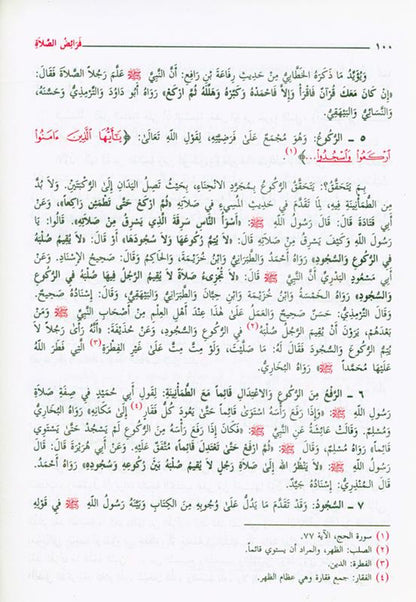 ١٠٠ فَرَائِضُ الصَّلاَةِ
وَيُؤَيِّدُ مَا ذَكَرَهُ الخَطَّابِيُّ مِنْ حَدِيثِ رِفَاعَةَ بْنِ رَافِعٍ: أَنَّ النَّبِيَّ ﷺ عَلَّمَ رَجُلاً الصَّلاَةَ فَقَالَ:
«إِنْ كَانَ مَعَكَ قُرْآنٌ فَاقْرَأْ وَإِلاَّ فَاحْمَدْهُ وَكَبِّرْهُ وَهَلِّلْهُ ثُمَّ ارْكَعْ» رَوَاهُ أَبُو دَاوُدَ وَالتِّرْمِذِيُّ وَحَسَّنَهُ،
وَالنَّسَائِيُّ وَالبَيْهَقِيُّ.
٥ - الرُّكُوعُ: وَهُوَ مُجْمَعٌ عَلَىٰ فَرَضِيَّتِهِ، لِقَوْلِ اللَّهِ تَعَالَىٰ: ﴿يَـٰٓأَيُّهَا ٱلَّذِينَ ءَامَنُوا۟
ٱرْكَعُوا۟ وَٱسْجُدُوا۟...﴾(١).
بِمَ يَتَحَقَّقُ؟: يَتَحَقَّقُ الرُّكُوعُ بِمُجَرَّدِ الانْحِنَاءِ، بِحَيْثُ تَصِلُ اليَدَانِ إِلَىٰ الرُّكْبَتَيْنِ. وَلاَ بُدَّ
مِنَ الطُّمَأْنِينَةِ فِيهِ، لِمَا تَقَدَّمَ فِي حَدِيثِ المُسِيءِ فِي صَلاَتِهِ «ثُمَّ ارْكَعْ حَتَّىٰ تَطْمَئِنَّ رَاكِعاً»، وَعَنْ
أَبِي قَتَادَةَ قَالَ: قَالَ رَسُولُ اللَّهِ ﷺ: «أَسْوَأُ النَّاسِ سَرِقَةً الَّذِي يَسْرِقُ مِنْ صَلاَتِهِ». قَالُوا: يَا
رَسُولَ اللَّهِ وَكَيْفَ يَسْرِقُ مِنْ صَلاَتِهِ؟ قَالَ: «لاَ يُتِمُّ رُكُوعَهَا وَلاَ سُجُودَهَا» أَوْ قَالَ: «لاَ يُقِيمُ صُلْبَهُ
فِي الرُّكُوعِ وَالسُّجُودِ» رَوَاهُ أَحْمَدُ وَالطَّبَرَانِيُّ وَابْنُ خُزَيْمَةَ، وَالحَاكِمُ وَقَالَ: صَحِيحُ الإِسْنَادِ. وَعَنْ
أَبِي مَسْعُودٍ البَدْرِيِّ أَنَّ النَّبِيَّ ﷺ قَالَ: «لاَ تُجْزِىءُ صَلاَةٌ لاَ يُقِيمُ الرَّجُلُ فِيهَا صُلْبَهُ فِي الرُّكُوعِ
وَالسُّجُودِ» رَوَاهُ الخَمْسَةُ وَابْنُ خُزَيْمَةَ وَابْنُ حِبَّانَ وَالطَّبَرَانِيُّ وَالبَيْهَقِيُّ، وَقَالَ: إِسْنَادُهُ صَحِيحٌ.
وَقَالَ التِّرْمِذِيُّ: حَسَنٌ صَحِيحٌ وَالعَمَلُ عَلَىٰ هَذَا عِنْدَ أَهْلِ العِلْمِ مِنْ أَصْحَابِ النَّبِيِّ ﷺ وَمَنْ
بَعْدَهُمْ، يَرَوْنَ أَنْ يُقِيمَ الرَّجُلُ صُلْبَهُ(٢) فِي الرُّكُوعِ وَالسُّجُودِ، وَعَنْ حُذَيْفَةَ: «أَنَّهُ رَأَىٰ رَجُلاً لاَ
يُتِمُّ الرُّكُوعَ وَالسُّجُودَ فَقَالَ لَهُ: مَا صَلَّيْتَ، وَلَوْ مِتَّ مِتَّ عَلَىٰ غَيْرِ الفِطْرَةِ(٣) الَّتِي فَطَرَ اللَّهُ
عَلَيْهَا مُحَمَّداً ﷺ» رَوَاهُ البُخَارِيُّ.
٦ - الرَّفْعُ مِنَ الرُّكُوعِ وَالاعْتِدَالِ قَائِماً مَعَ الطُّمَأْنِينَةِ: لِقَوْلِ أَبِي حُمَيْدٍ فِي صِفَةِ صَلاَةِ
رَسُولِ اللَّهِ ﷺ: «وَإِذَا رَفَعَ رَأْسَهُ اسْتَوَىٰ قَائِماً حَتَّىٰ يَعُودَ كُلُّ فَقَارٍ(٤) إِلَىٰ مَكَانِهِ» رَوَاهُ البُخَارِيُّ
وَمُسْلِمٌ. وَقَالَتْ عَائِشَةُ عَنِ النَّبِيِّ ﷺ: «فَكَانَ إِذَا رَفَعَ رَأْسَهُ مِنَ الرُّكُوعِ لَمْ يَسْجُدْ حَتَّىٰ يَسْتَوِيَ
قَائِماً» رَوَاهُ مُسْلِمٌ، وَقَالَ ﷺ: «ثُمَّ ارْفَعْ حَتَّىٰ تَعْتَدِلَ قَائِماً» مُتَّفَقٌ عَلَيْهِ. وَعَنْ أَبِي هُرَيْرَةَ قَالَ: قَالَ
رَسُولُ اللَّهِ ﷺ: «لاَ يَنْظُرُ اللَّهُ إِلَىٰ صَلاَةِ رَجُلٍ لاَ يُقِيمُ صُلْبَهُ بَيْنَ رُكُوعِهِ وَسُجُودِهِ» رَوَاهُ أَحْمَدُ.
قَالَ المُنْذِرِيُّ: إِسْنَادُهُ جَيِّدٌ.
٧ - السُّجُودُ: وَقَدْ تَقَدَّمَ مَا يَدُلُّ عَلَىٰ وُجُوبِهِ مِنَ الكِتَابِ وَبَيَّنَهُ رَسُولُ اللَّهِ ﷺ فِي قَوْلِهِ
(١) سورة الحج، الآية ٧٧.
(٢) الصلب: الظهر، والمراد أن يستوي قائماً.
(٣) الفطرة: الدين.
(٤) الفقار: جمع فقارة وهي عظام الظهر.